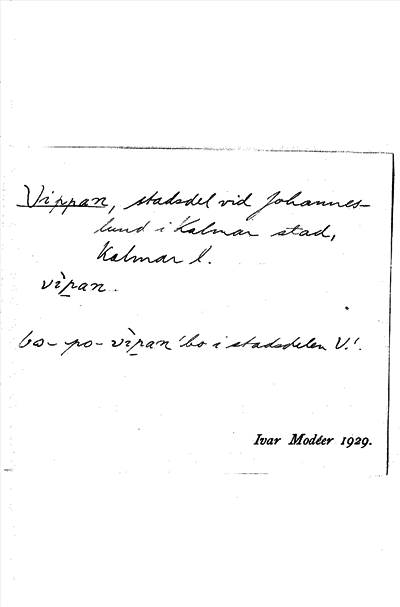 Vippan, stadsdel vid Johannes-
lund i Kalmar stad,
Kalmar l.
vìpan.
bo- po- vìpan 'bo i stadsdelen V.'.
Ivar Modéer 1929.